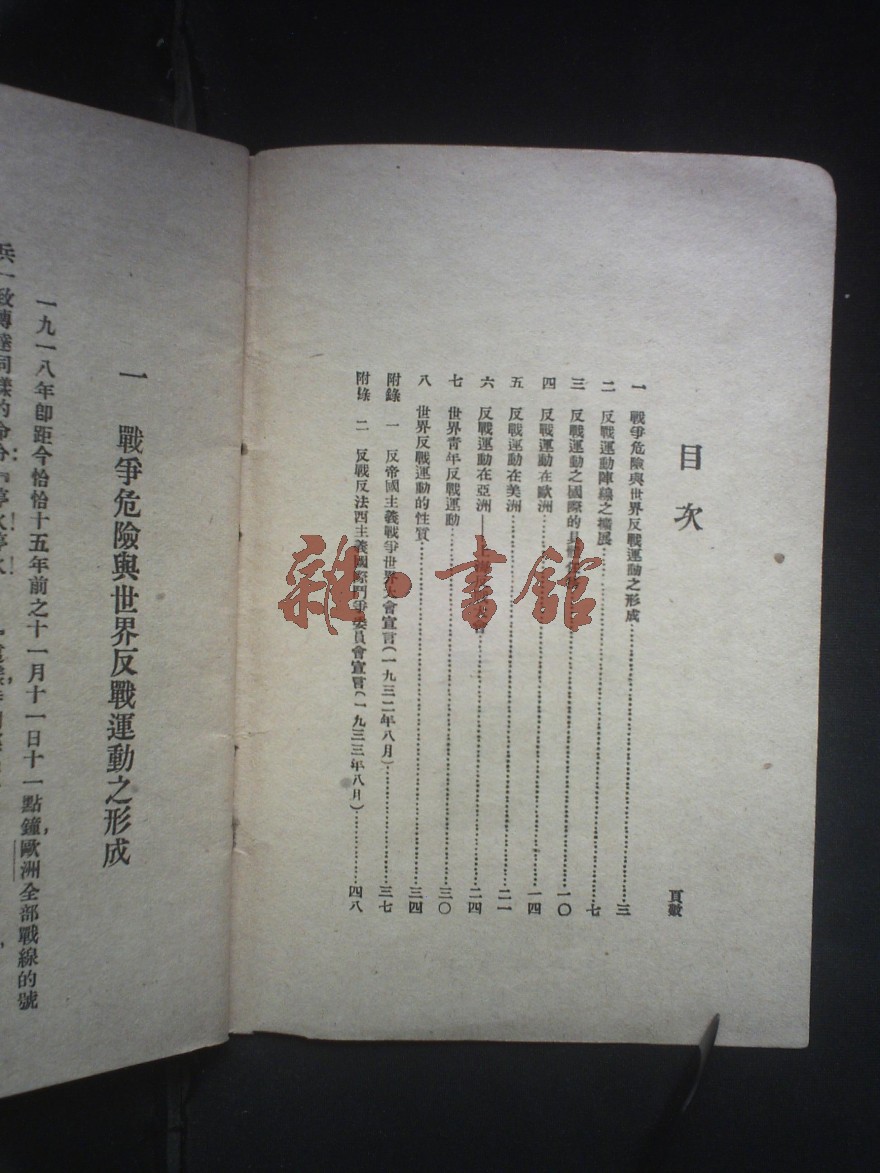 目次
頁數
一 戰爭危險與世界反戰運動之形成……三
二 反戰運動陣線之擴展……七
三 反戰運動之國際的具體……一〇
四 反戰運動在歐洲……一四
五 反戰運動在美洲……二一
六 反戰運動在亞洲——上海反戰……會……二四
七 世界青年反戰運動……三〇
八 世界反戰運動的性質……三四
附錄 一 反帝國主義戰爭世界大會宣言(一九三二年八月)……三七
附錄 二 反戰反法西主義國際鬥爭委員會宣言(一九三三年八月)……四八
一 戰爭危險與世界反戰運動之形成
一九一八年卽距今恰恰十五年前之十一月十一日十一點鐘,歐洲全部戰線的號
兵一致傳達同樣的命令:『停火!停火!
雜·書館